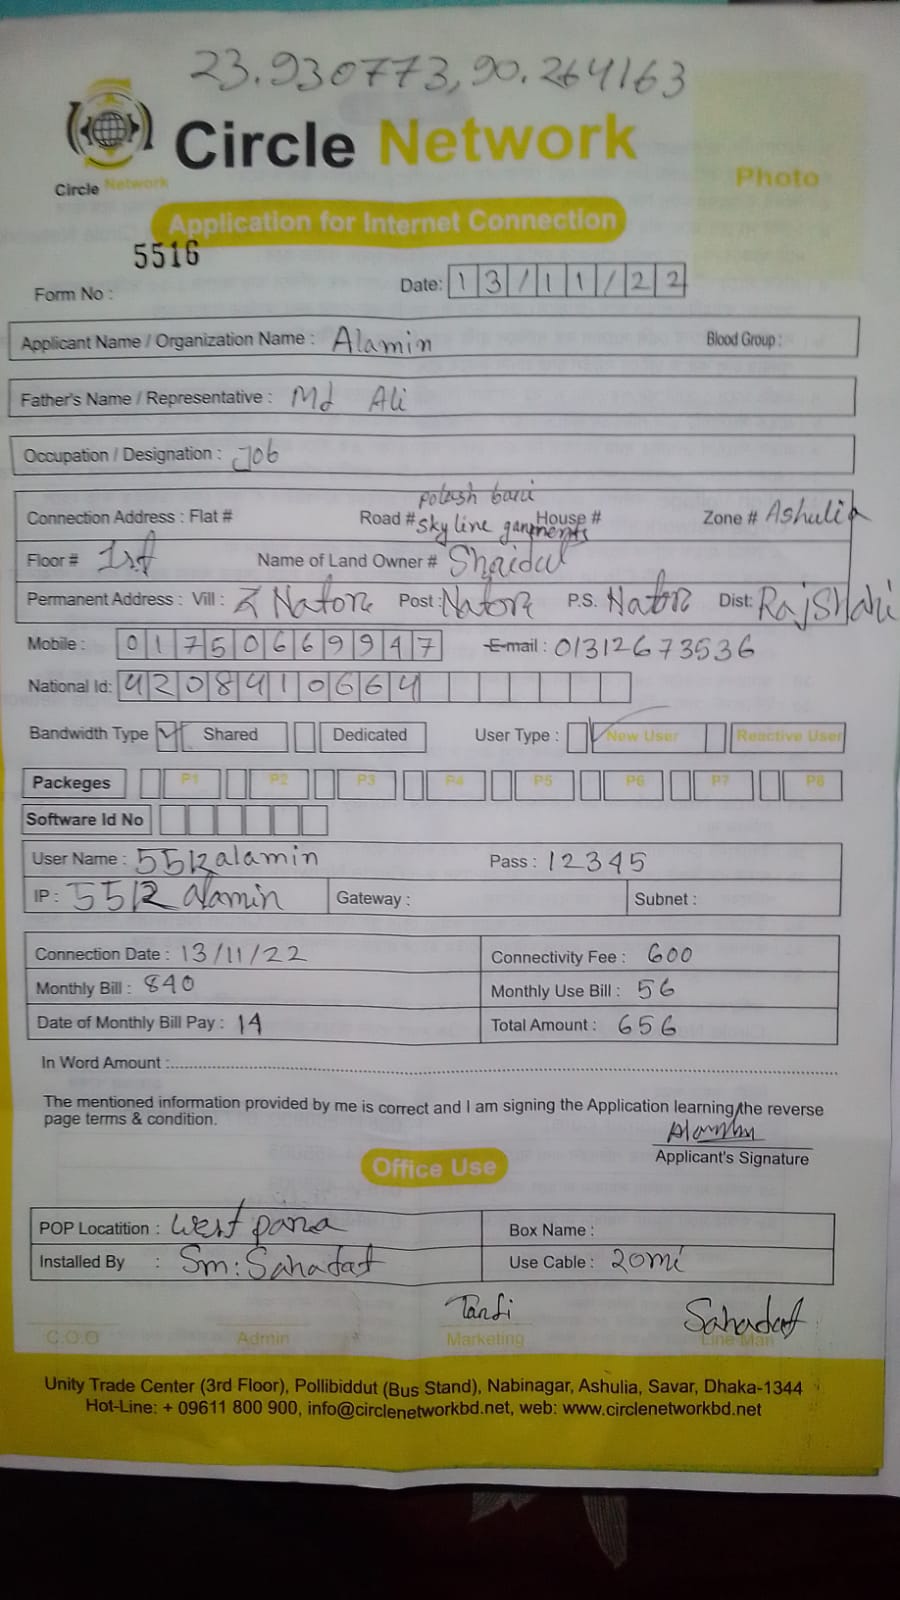 23.930773,90.264163
Circle Network
Circle Network
Photo
Application for Internet Connection
5516
Form No :
Date: 13/11/22
Applicant Name / Organization Name : Alamin Blood Group :
Father's Name / Representative : Md Ali
Occupation / Designation : Job
polash bari
Connection Address : Flat # Road # Sky line garments House # Zone # Ashulia
Floor # 1st Name of Land Owner # Shaidul
Permanent Address : Vill : Natore Post : Natore P.S. Natore Dist: Rajshahi
Mobile : 01750669947 E-mail : 01312673536
National Id: 4208410664
Bandwidth Type Shared Dedicated User Type : New User Reactive User
Packeges P1 P2 P3 P4 P5 P6 P7 P8
Software Id No
User Name : 5512alamin Pass : 12345
IP : 5512 alamin Gateway : Subnet :
Connection Date : 13/11/22 Connectivity Fee : 600
Monthly Bill : 840 Monthly Use Bill : 56
Date of Monthly Bill Pay : 14 Total Amount : 656
In Word Amount :
The mentioned information provided by me is correct and I am signing the Application learning/the reverse
page terms & condition.
Applicant's Signature
Office Use
POP Locatition : West para Box Name :
Installed By : Sm: Sahadat Use Cable : 20mi
Sahadat
C.O.O Admin Marketing Line Man
Unity Trade Center (3rd Floor), Pollibiddut (Bus Stand), Nabinagar, Ashulia, Savar, Dhaka-1344
Hot-Line: + 09611 800 900, info@circlenetworkbd.net, web: www.circlenetworkbd.net